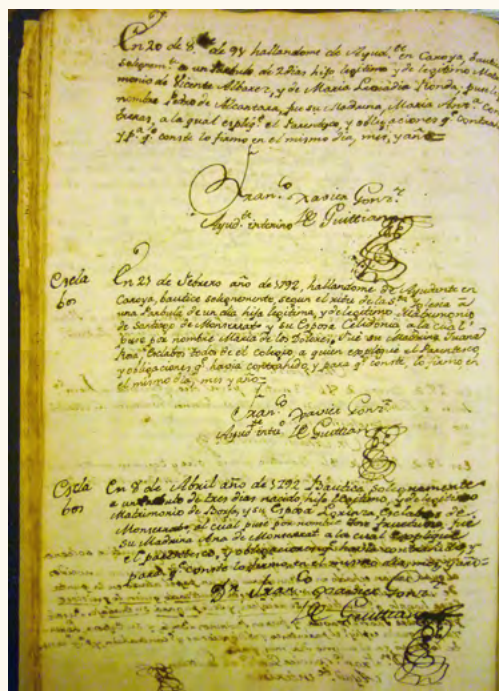 En 20 de 8.bre de 91 hallandome de Ayud.te en Caroya, bautice
solegnem.te a un Parbulo de 2 dias hijo legitimo y de legitimo Matri
monio de Vicente Albarez, y de Maria Leocadia Ronda, puse le p.r
nombre Pedro de Alcantara, fue su Madrina, Maria Ant.a Con
treras, a la qual expliq.e el Parentesco, y obligaciones q.e contrae
y p.a q.e conste lo firmo en el mismo dia, mes, y año
Fran.co Xavier Gonz.z
Ayud.te interino de Guittian
Escla
bos
En 21 de Febrero año de 1792, hallandome de Ayudante en
Caroya, bautice solegnemente, segun el rito de la S.ta Iglesia a
una Parbula de un dia hija legitima, y de legitimo Matrimonio
de Santiago de Monserrat y su Esposa Celidonia a la cual
puse por nombre Maria de los Dolores, Fue su Madrina Juana
Rosa Esclabos todos de el colegio, a quien explique el Parentesco
y obligaciones q.e havia contrahido, y para q.e conste, lo firmo en
el mismo dia, mes y año
Fran.co Xavier Gonz.z
Ayud.te inter.o de Guittian
Escla
bos
En 9 de Abril año de 1792 Bautice solegnemente
a un Parbulo de tres dias nacido, hijo legitimo, y de legitimo
Matrimonio de Borja, y su Esposa Lorenza, Esclabos de
Monserrat, al cual puse por nombre Fructuoso, fue
su Madrina Ana de Monserrat a la cual explique
el parentesco, y obligacion q.e havia contrahido, y
para q.e conste lo firmo, en el mismo dia, mes, y año
Fran.co Xavier Gonz.z
de Guittian